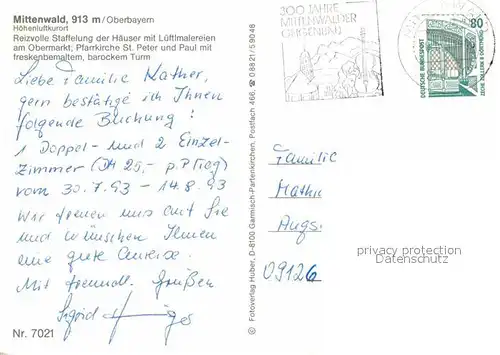 Mittenwald, 913 m/Oberbayern
Höhenluftkurort
Reizvolle Staffelung der Häuser mit Lüftlmalereien
am Obermarkt; Pfarrkirche St. Peter und Paul mit
freskenbemaltem, barockem Turm
Liebe Familie Kather,
gern bestätige ich Ihnen
folgende Buchung!
1 Doppel- und 2 Einzel-
Zimmer (DM 25,- p.P Tag)
vom 30.7.93 - 14.8.93
Wir freuen uns auf Sie
und wünschen Ihnen
eine gute Anreise.
Mit freundl. Grüßen
Sigrid
Nr. 7021
© Fotoverlag Huber, D-8100 Garmisch-Partenkirchen, Postfach 466, ☎ 08821/59048
300 JAHRE
MITTENWALDER
GEIGENBAU
80
DEUTSCHE BUNDESPOST
ZECHE ZOLLERN II DORTMUND
Familie
Augs
09126
privacy protection
Datenschutz